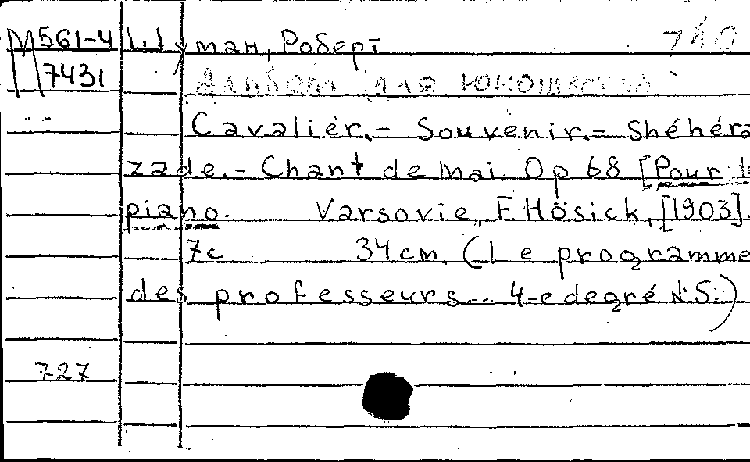 М561-4 Шуман, Роберт 740
7431 Альбом для юношества
Cavalier.- Souvenir.= Shéhéra
zade.- Chant de mai. Op 68 [Pour le
piano. Varsovie, F. Hösick, [1903].
7c 34cm. (Le programme
des professeurs... 4-e degré N:5.)
727